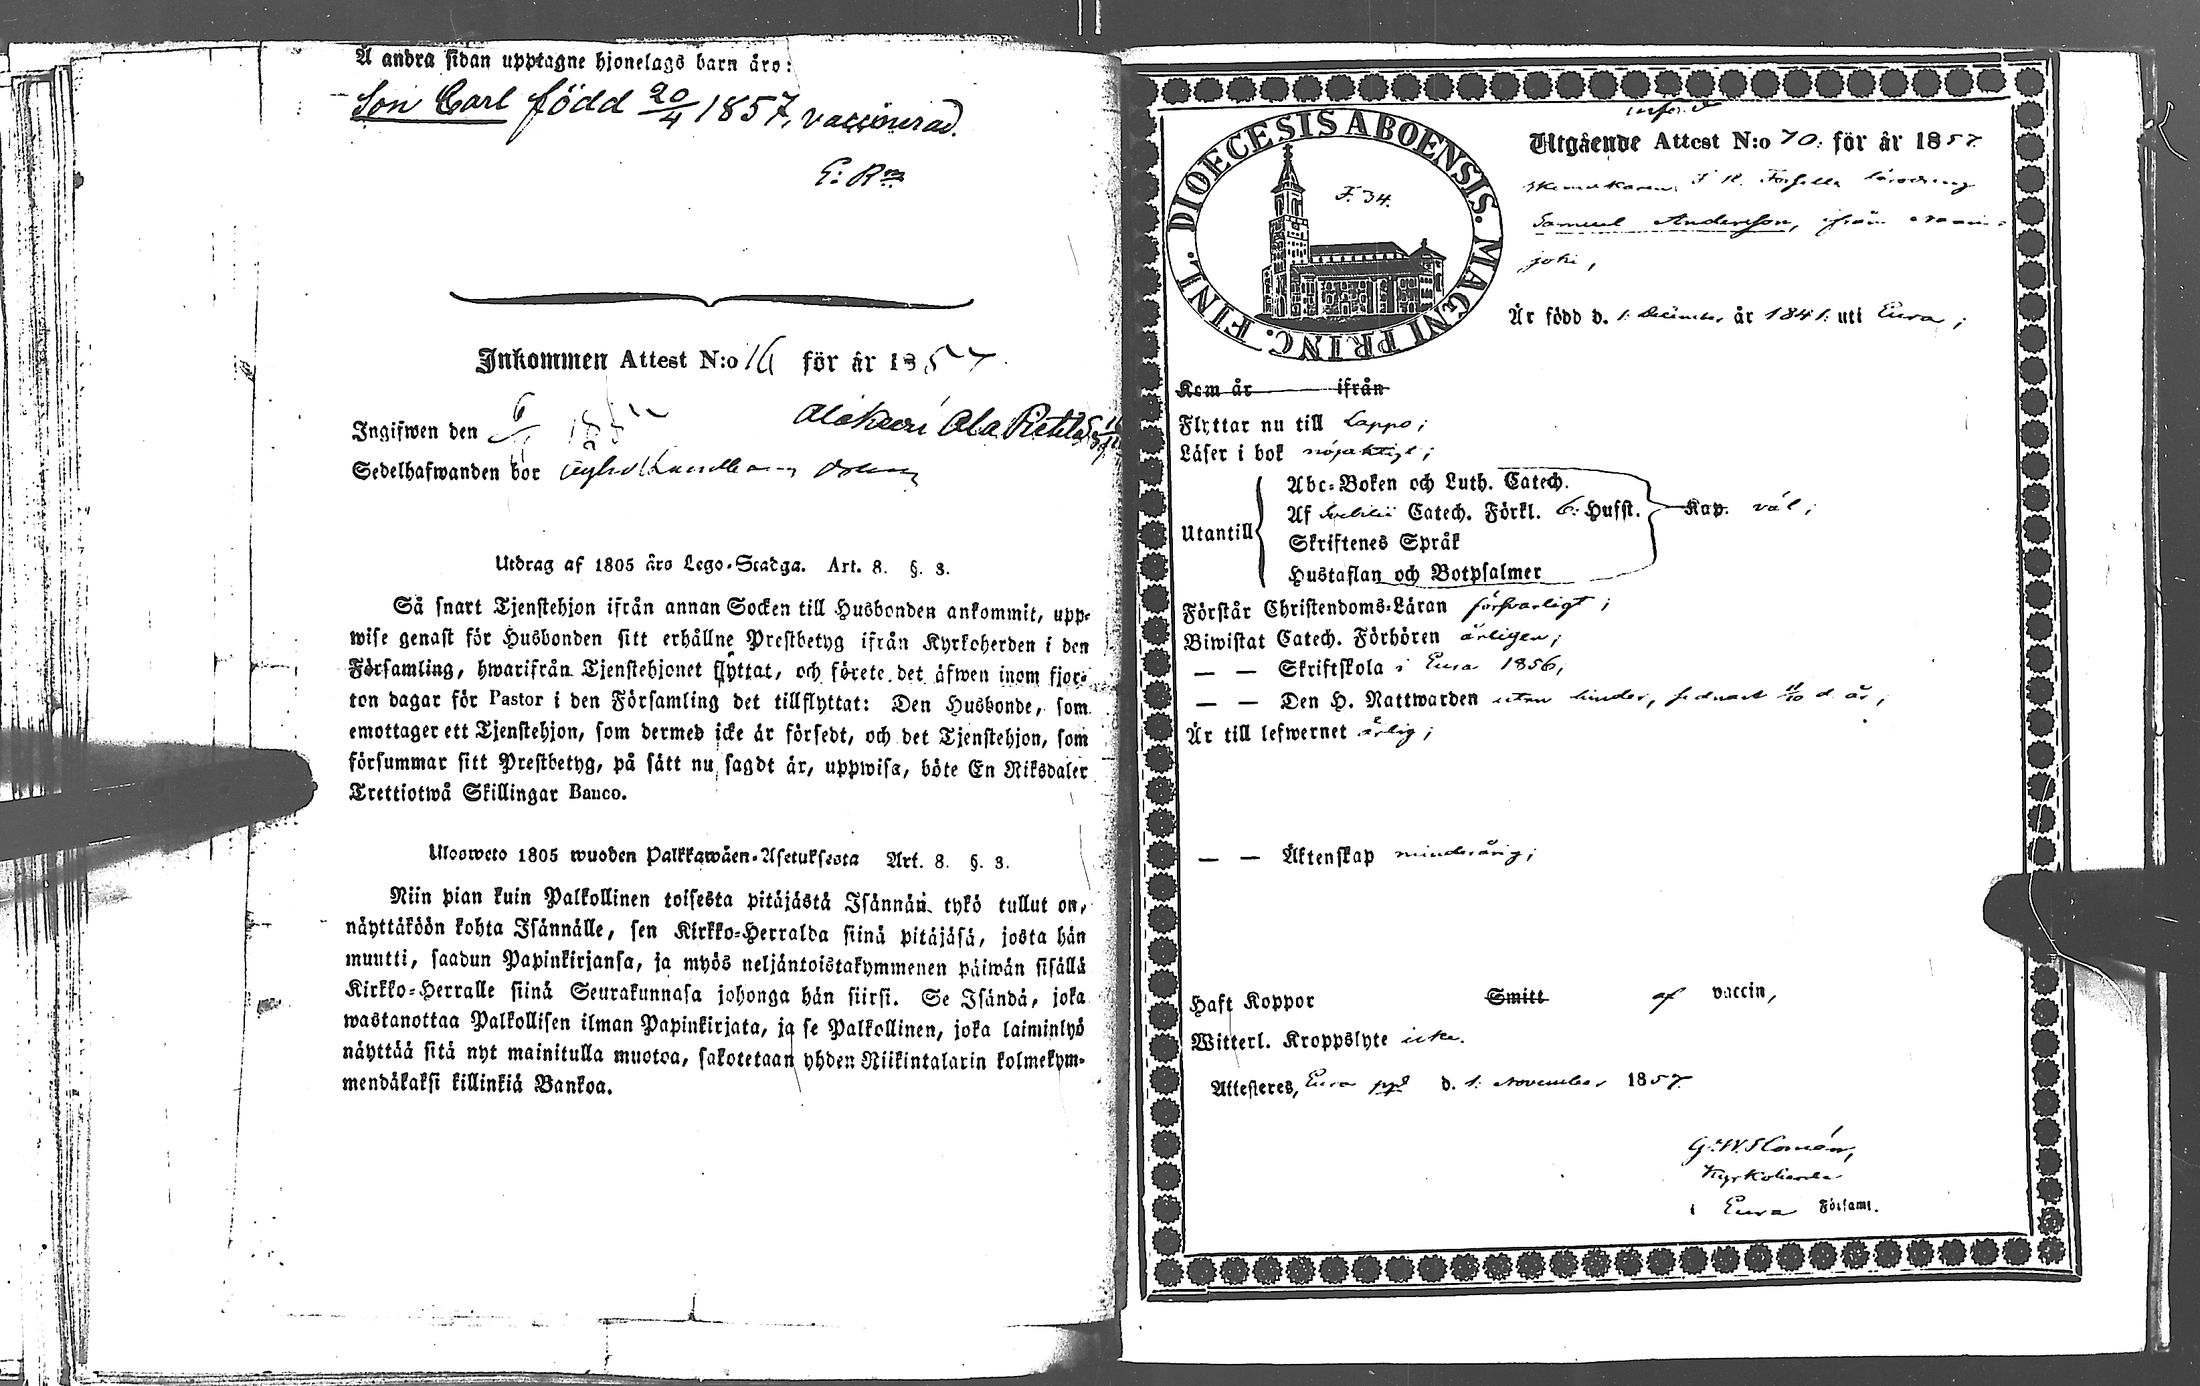 Å andra sidan upptagne hjonelags barn äro:
Son Carl född 20/4 1857, vaccinerad.
Inkommen Attest N:o 16 för år 1857.
Ingifwen den
Sedelhafwanden bor
Utdrag af 1805 års Lego-Stadga. Art. 8. §. 3.
Så snart Tjenstehjon ifrån annan Socken till Husbonden ankommit, upp-
wise genast för Husbonden sitt erhållne Prestbetyg ifrån Kyrkoherden i den
Församling, hwarifrån Tjenstehjonet flyttat, och förete det äfwen inom fjor-
ton dagar för Pastor i den Församling det tillflyttat: Den Husbonde, som
emottager ett Tjenstehjon, som dermed icke är försedt, och det Tjenstehjon, som
försummar sitt Prestbetyg, på sätt nu sagdt är, uppwisa, böte En Riksdaler
Trettiotwå Skillingar Banco.
Ulosweto 1805 wuoden Palkkawäen-Asetuksesta Art. 8. §. 3.
Niin pian kuin Palkollinen toisesta pitäjästä Isännän tykö tullut on,
näyttäköön kohta Isännälle, sen Kirkko-Herralda siinä pitäjäsä, josta hän
muutti, saadun Papinkirjansa, ja myös neljäntoistakymmenen päiwän sisällä
Kirkko-Herralle siinä Seurakunnasa johonga hän siirsi. Se Isändä, joka
wastanottaa Palkollisen ilman Papinkirjata, ja se Palkollinen, joka laiminlyö
näyttää sitä nyt mainitulla muotoa, sakotetaan yhden Riikintalarin kolmekym-
mendäkaksi killinkiä Bankoa.
DIOECESIS ABOENSIS. MAGNI PRINC. FINL.
F. 34.
Utgående Attest N:o 70. för år 1857.
Samuel Andersson, ifrån
joki,
Är född d. 1. December år 1841. uti Eura;
Kom år ifrån
Flyttar nu till Lappo;
Läser i bok nöjaktigt;
Utantill
Abc-Boken och Luth. Catech.
Af Svebilii Catech. Förkl. 6. Hufst. Kap. väl;
Skriftenes Språk
Hustaflan och Botpsalmer
Förstår Christendoms-Läran försvarligt;
Biwistat Catech. Förhören årligen;
— — Skriftskola i Eura 1856,
— — Den H. Nattwarden utan hinder, sednast 11/10 d. år;
Är till lefwernet ärlig;
— — Äktenskap minderårig;
Haft Koppor Smitt af vaccin,
Witterl. Kroppslyte icke.
Attesteres, Eura ppd d. 1. November 1857.
Kyrkoherde
i Eura Församl.